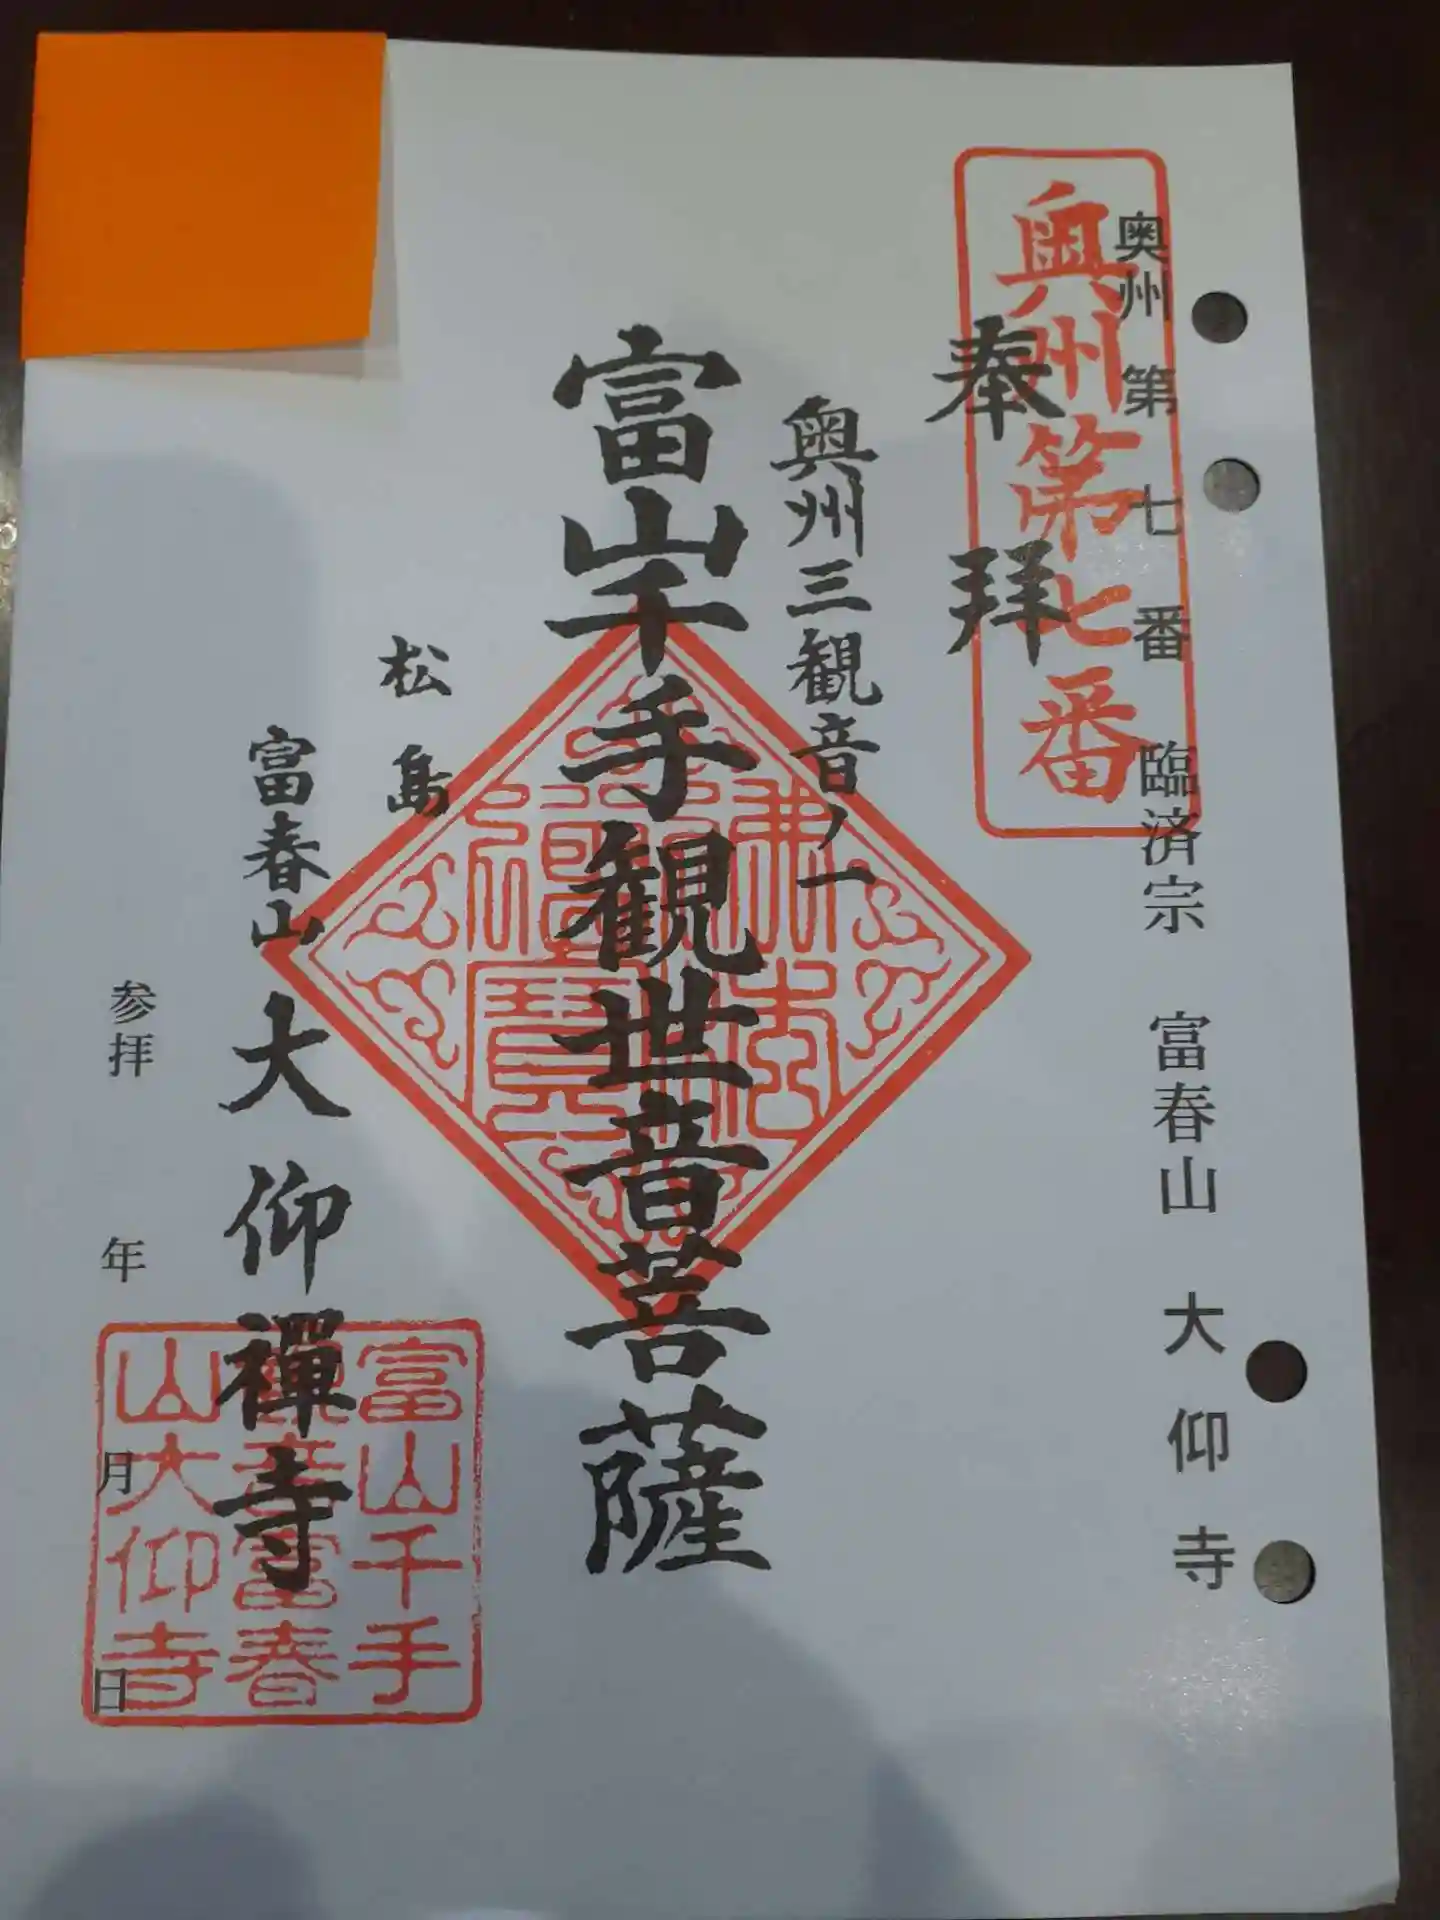 奥州第七番　臨済宗　富春山　大仰寺
奥州第七番
奉拝
奥州三観音ノ一
富山千手観世音菩薩
松島
富春山大仰禅寺
富山千手
観音富春
山大仰寺
参拝　年　月　日